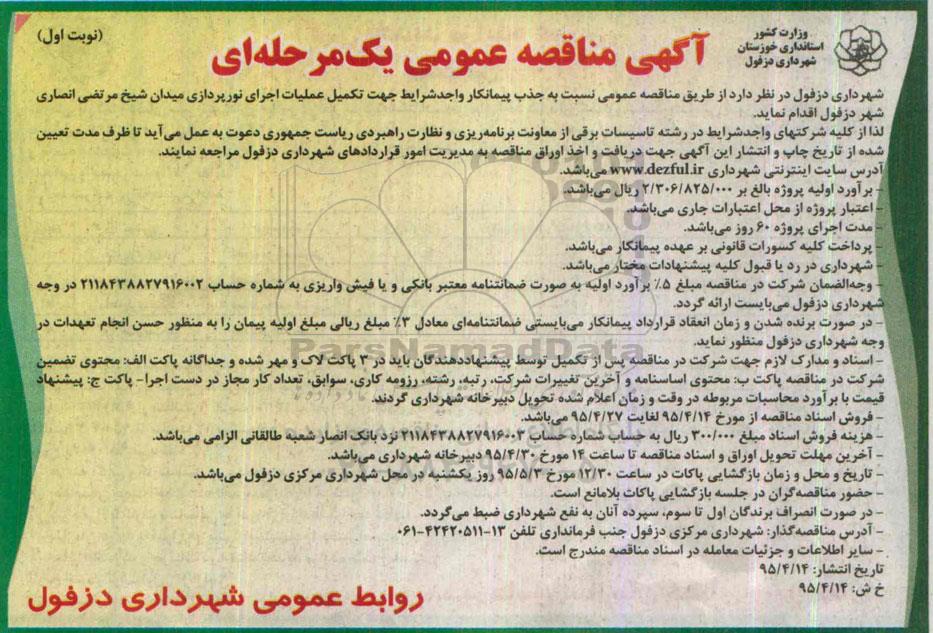 وزارت کشور
استانداری خوزستان
شهرداری دزفول
آگهی مناقصه عمومی یک‌مرحله‌ای
(نوبت اول)
شهرداری دزفول در نظر دارد از طریق مناقصه عمومی نسبت به جذب پیمانکار واجدشرایط جهت تکمیل عملیات اجرای نورپردازی میدان شیخ مرتضی انصاری
شهر دزفول اقدام نماید.
لذا از کلیه شرکتهای واجدشرایط در رشته تاسیسات برقی از معاونت برنامه‌ریزی و نظارت راهبردی ریاست جمهوری دعوت به عمل می‌آید تا ظرف مدت تعیین
شده از تاریخ چاپ و انتشار این آگهی جهت دریافت و اخذ اوراق مناقصه به مدیریت امور قراردادهای شهرداری دزفول مراجعه نمایند.
آدرس سایت اینترنتی شهرداری www.dezful.ir می‌باشد.
- برآورد اولیه پروژه بالغ بر ۲/۳۰۶/۸۲۵/۰۰۰ ریال می‌باشد.
- اعتبار پروژه از محل اعتبارات جاری می‌باشد.
- مدت اجرای پروژه ۶۰ روز می‌باشد.
- پرداخت کلیه کسورات قانونی بر عهده پیمانکار می‌باشد.
- شهرداری در رد یا قبول کلیه پیشنهادات مختار می‌باشد.
- وجه‌الضمان شرکت در مناقصه مبلغ ۵٪ برآورد اولیه به صورت ضمانتنامه معتبر بانکی و یا فیش واریزی به شماره حساب ۲۱۱۸۴۳۸۸۲۷۹۱۶۰۰۲ در وجه
شهرداری دزفول می‌بایست ارائه گردد.
- در صورت برنده شدن و زمان انعقاد قرارداد پیمانکار می‌بایستی ضمانتنامه‌ای معادل ۳٪ مبلغ ریالی مبلغ اولیه پیمان را به منظور حسن انجام تعهدات در
وجه شهرداری دزفول منظور نماید.
ParsNamadData
- اسناد و مدارک لازم جهت شرکت در مناقصه پس از تکمیل توسط پیشنهاددهندگان باید در ۳ پاکت لاک و مهر شده و جداگانه پاکت الف: محتوی تضمین
شرکت در مناقصه پاکت ب: محتوی اساسنامه و آخرین تغییرات شرکت، رتبه، رشته، رزومه کاری، سوابق، تعداد کار مجاز در دست اجرا- پاکت ج: پیشنهاد
قیمت با برآورد محاسبات مربوطه در وقت و زمان اعلام شده تحویل دبیرخانه شهرداری گردند.
- فروش اسناد مناقصه از مورخ ۹۵/۴/۱۴ لغایت ۹۵/۴/۲۷ می‌باشد.
- هزینه فروش اسناد مبلغ ۳۰۰/۰۰۰ ریال به حساب شماره حساب ۲۱۱۸۴۳۸۸۲۷۹۱۶۰۰۳ نزد بانک انصار شعبه طالقانی الزامی می‌باشد.
- آخرین مهلت تحویل اوراق و اسناد مناقصه تا ساعت ۱۴ مورخ ۹۵/۴/۳۰ دبیرخانه شهرداری می‌باشد.
- تاریخ و محل و زمان بازگشایی پاکات در ساعت ۱۲/۳۰ مورخ ۹۵/۵/۳ روز یکشنبه در محل شهرداری مرکزی دزفول می‌باشد.
- حضور مناقصه‌گران در جلسه بازگشایی پاکات بلامانع است.
- در صورت انصراف برندگان اول تا سوم، سپرده آنان به نفع شهرداری ضبط می‌گردد.
- آدرس مناقصه‌گذار: شهرداری مرکزی دزفول جنب فرمانداری تلفن ۱۳-۴۲۴۲۰۵۱۱-۰۶۱
- سایر اطلاعات و جزئیات معامله در اسناد مناقصه مندرج است.
تاریخ انتشار: ۹۵/۴/۱۴
خ ش: ۹۵/۴/۱۴
روابط عمومی شهرداری دزفول